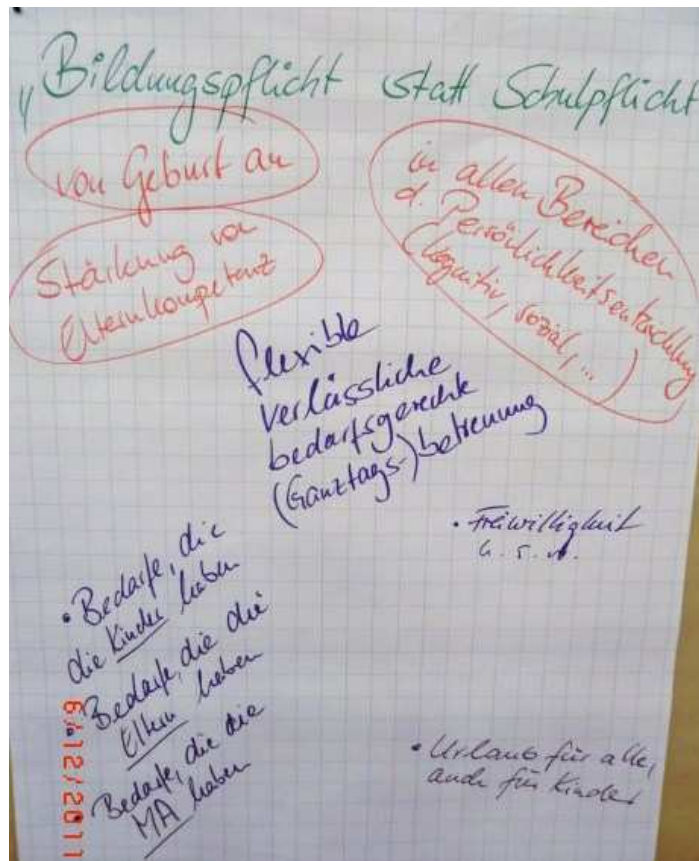 „Bildungspflicht statt Schulpflicht
von Geburt an
in allen Bereichen
d. Persönlichkeitsentwicklung
(kognitiv, sozial, ...)
Stärkung von
Elternkompetenz
flexible
verlässliche
bedarfsgerechte
(Ganztags-)betreuung
• Freiwilligkeit
• Bedarfe, die
die Kinder haben
• Bedarfe, die die
Eltern haben
• Bedarfe, die die
MA haben
• Urlaub für alle,
auch für Kinder
6/12/2011